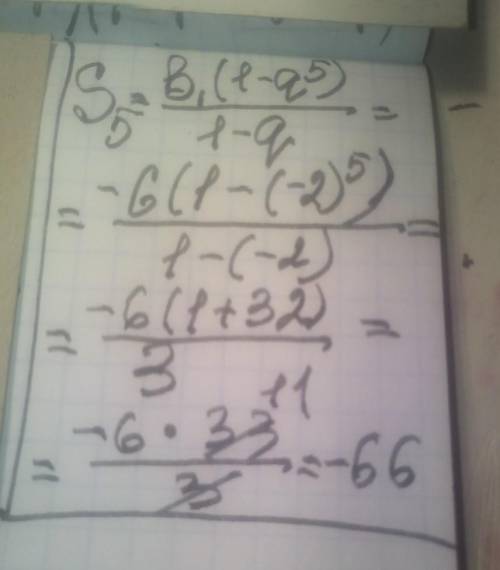 S₅ = B₁(1-q⁵)/1-q =
= -6(1-(-2)⁵)/1-(-2) =
= -6(1+32)/3 =
11
= -6·33/3 = -66